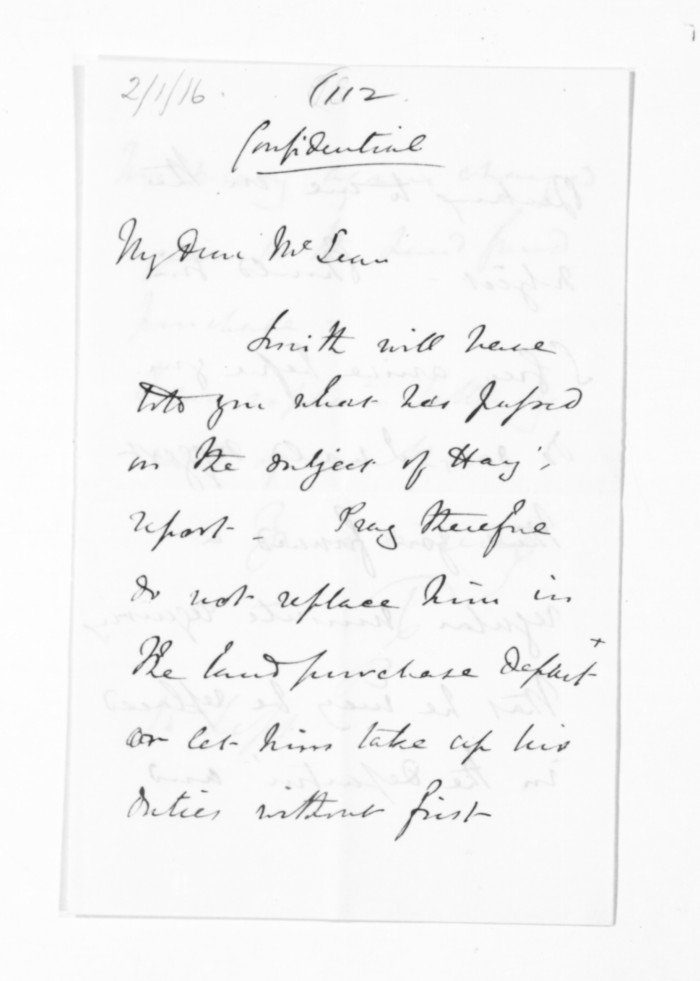 2/1/16.
Confidential
My Dear McLean
Smith will have
told you what has passed
on the subject of Hay's
report - Pray therefore
do not replace him in
the land purchase Depart^t
or let him take up his
duties without first